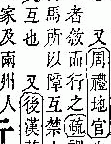 又周禮地官
者斂而行之疏調
馬所以障互禁
互也又後漢
家及兩州人